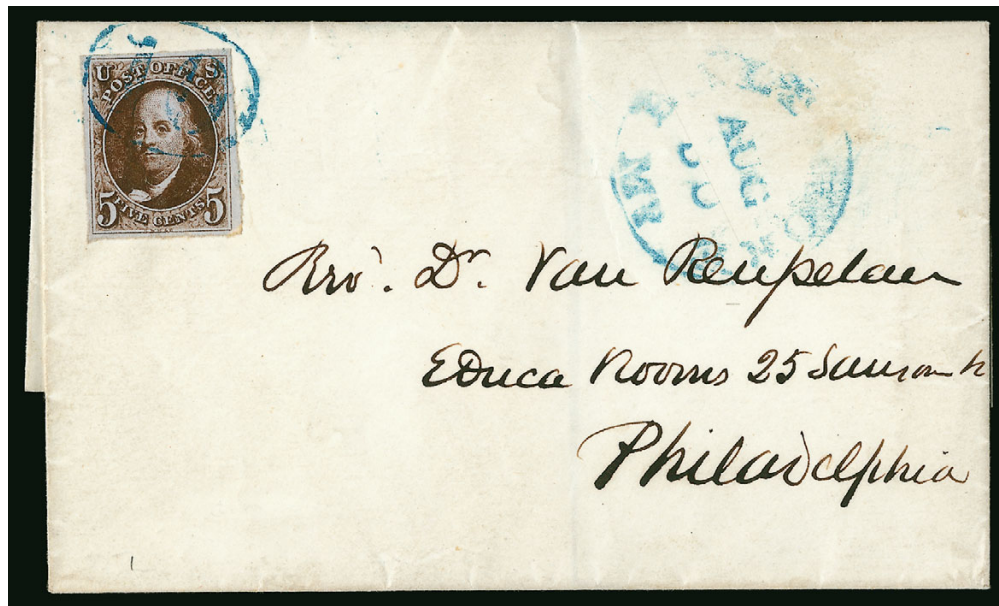 U S
POST OFFICE
FIVE CENTS
5 5
AUG
Rev. Dr. Van Renselaer
Educa Rooms 25 Sansom
Philadelphia